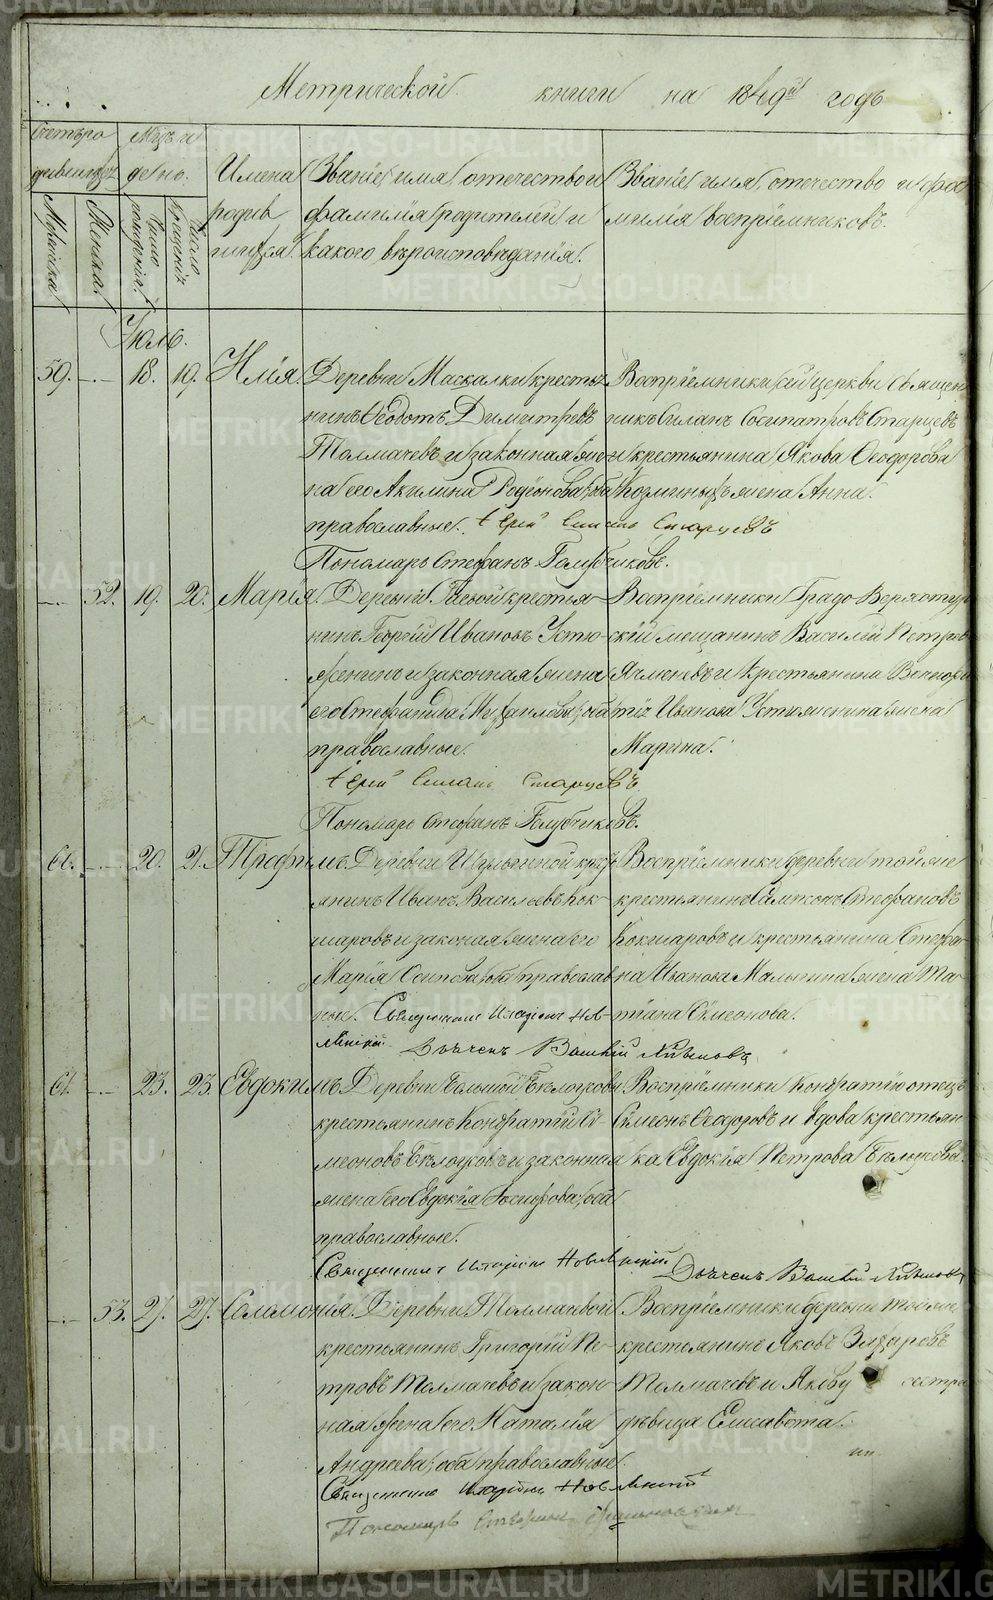 Метрической книги на 1849й годъ
Счетъ ро
дившихся
Мужеска
Женска
Мѣсяцъ и
день.
Число рожденія.
Число крещенія
Имена
родив
шихся
Званіе, имя, отечество и
фамилія родителей, и
какого вѣроисповѣданія.
Званіе, имя, отечество и фа
милія воспріемниковъ.
Іюль.
59. —.— 18. 19. Илія. Деревни Маскалки крестья-
нинъ Ѳеодотъ Димитревъ
Толмачевъ и законная же-
на его Акилина Родіонова, оба
православные. Іерей Силанъ Старцевъ
Пономарь Стефанъ Голубчиковъ.
Воспріемники сей церкви Священ
никъ Силанъ Сосипатровъ Старцевъ
и крестьянина Якова Ѳеодорова
жена Анна.
—.— 52. 19. 20. Марія. Деревни крестья-
нинъ Георгій Ивановъ Устю-
женинъ и законная жена
его Стефанида Михаилова, оба
православные.
Іерей Силанъ Старцевъ
Пономарь Стефанъ Голубчиковъ.
Воспріемники Градо Верхотур
скій мещанинъ Василій Петровъ
и крестьянина
Иванова Устюженина жена
Марина.
60. —.— 20. 21. Трофимъ. Деревни кресть
янинъ Иванъ Васильевъ Кок-
шаровъ и законая жена его
Марія Осипова, оба православ
ные. Священникъ Иларіонъ Нов-
лянскій
Дьячекъ
Воспріемники деревни той же
крестьянинъ Сампсонъ Стефановъ
Кокшаровъ и крестьянина Стефа-
на Иванова Малыгина жена Та-
тіана Симеонова.
61. —.— 23. 23. Евдокимъ. Деревни Большой Бѣлоусовой
крестьянинъ Кондратій Си-
меоновъ Бѣлоусовъ и законная
жена его Евдокія Іосифова, оба
православные.
Священникъ Иларіонъ Новлянскій
Дьячекъ
Воспріемники Кондратію отецъ
Симеонъ Ѳеодоровъ и вдова крестьян
ка Евдокія Петрова Бѣлоусова.
—.— 53. 27. 27. Соломонія. Деревни Толмачевой
крестьянинъ Григорій Пе-
тровъ Толмачевъ и закон-
ная жена его Наталія
Андреева, оба православные.
Священникъ Иларіонъ Новлянскій
Пономарь
Воспріемники деревни той же
крестьянинъ Яковъ
Толмачевъ и Якову сестра
дѣвица Елисавета.
METRIKI.GASO-URAL.RU